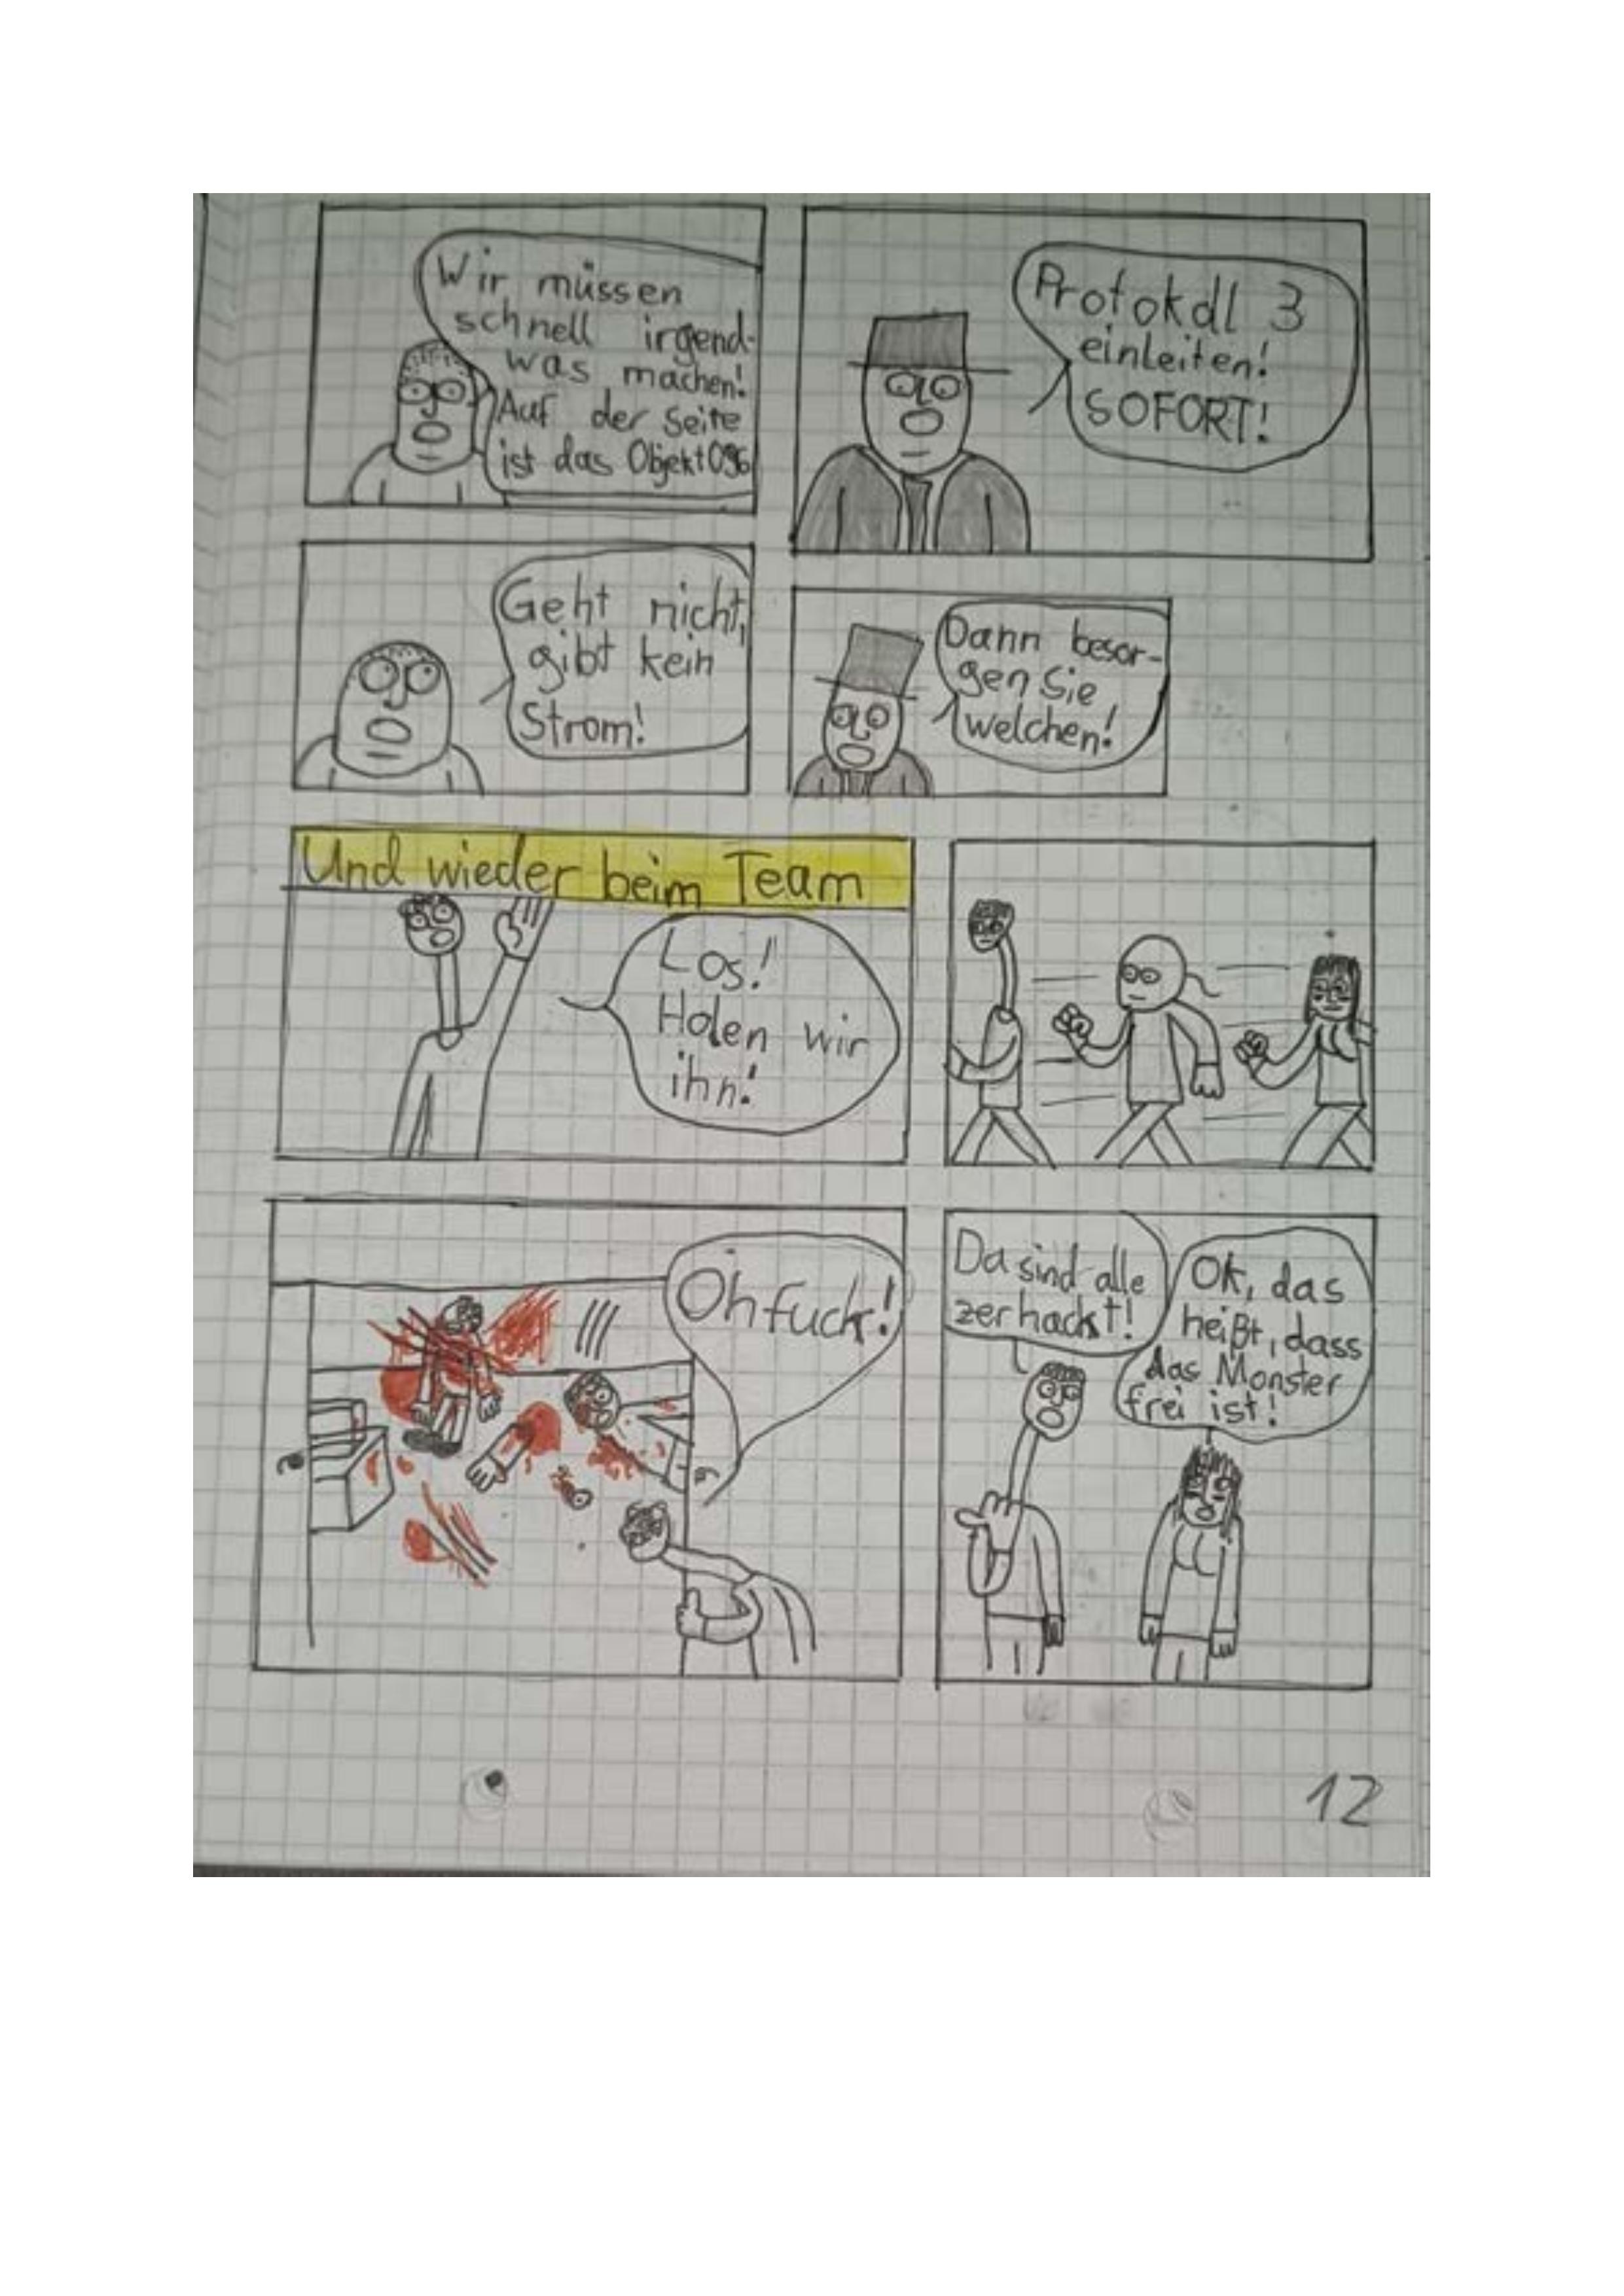 Wir müssen
schnell irgend-
was machen!
Auf der Seite
ist das Objekt 096
Protokoll 3
einleiten!
SOFORT!
Geht nicht,
gibt kein
Strom!
Dann besor-
gen Sie
welchen!
Und wieder beim Team
Los!
Holen wir
ihn!
Oh fuck!
Da sind alle
zerhackt!
Ok, das
heißt, dass
das Monster
frei ist!
12